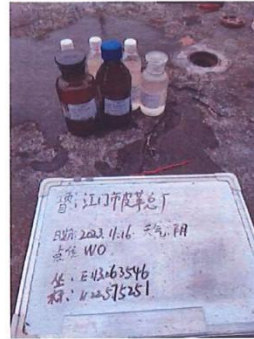 项目:江门市皮革总厂
日期:2023.11.16 天气:阴
点位 W0
坐:E113.063546
标:N22.575251